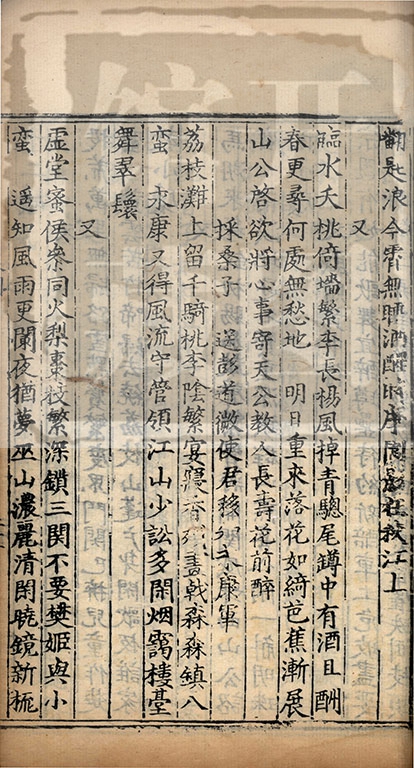 翻是浪今霄無睡酒醒時摩圍影在秋江上
又
臨水夭桃倚墻繁李長楊風掉青驄尾罇中有酒且酬
春更尋何處無愁地　明日重來落花如綺芭蕉漸展
山公啓欲將心事寄天公教人長壽花前醉
採桑子　送彭道微使君移知永康軍
荔枝灘上留千騎桃李陰繁宴寢香殘畫戟森森鎮八
蛮　永康又得風流守管領江山少訟多閑烟靄樓臺
舞翠鬟
又
虛堂蜜候參同火梨棗枝繁深鎖三関不要樊姬與小
蛮　遥知風雨更闌夜猶夢巫山濃麗清閑曉鏡新梳